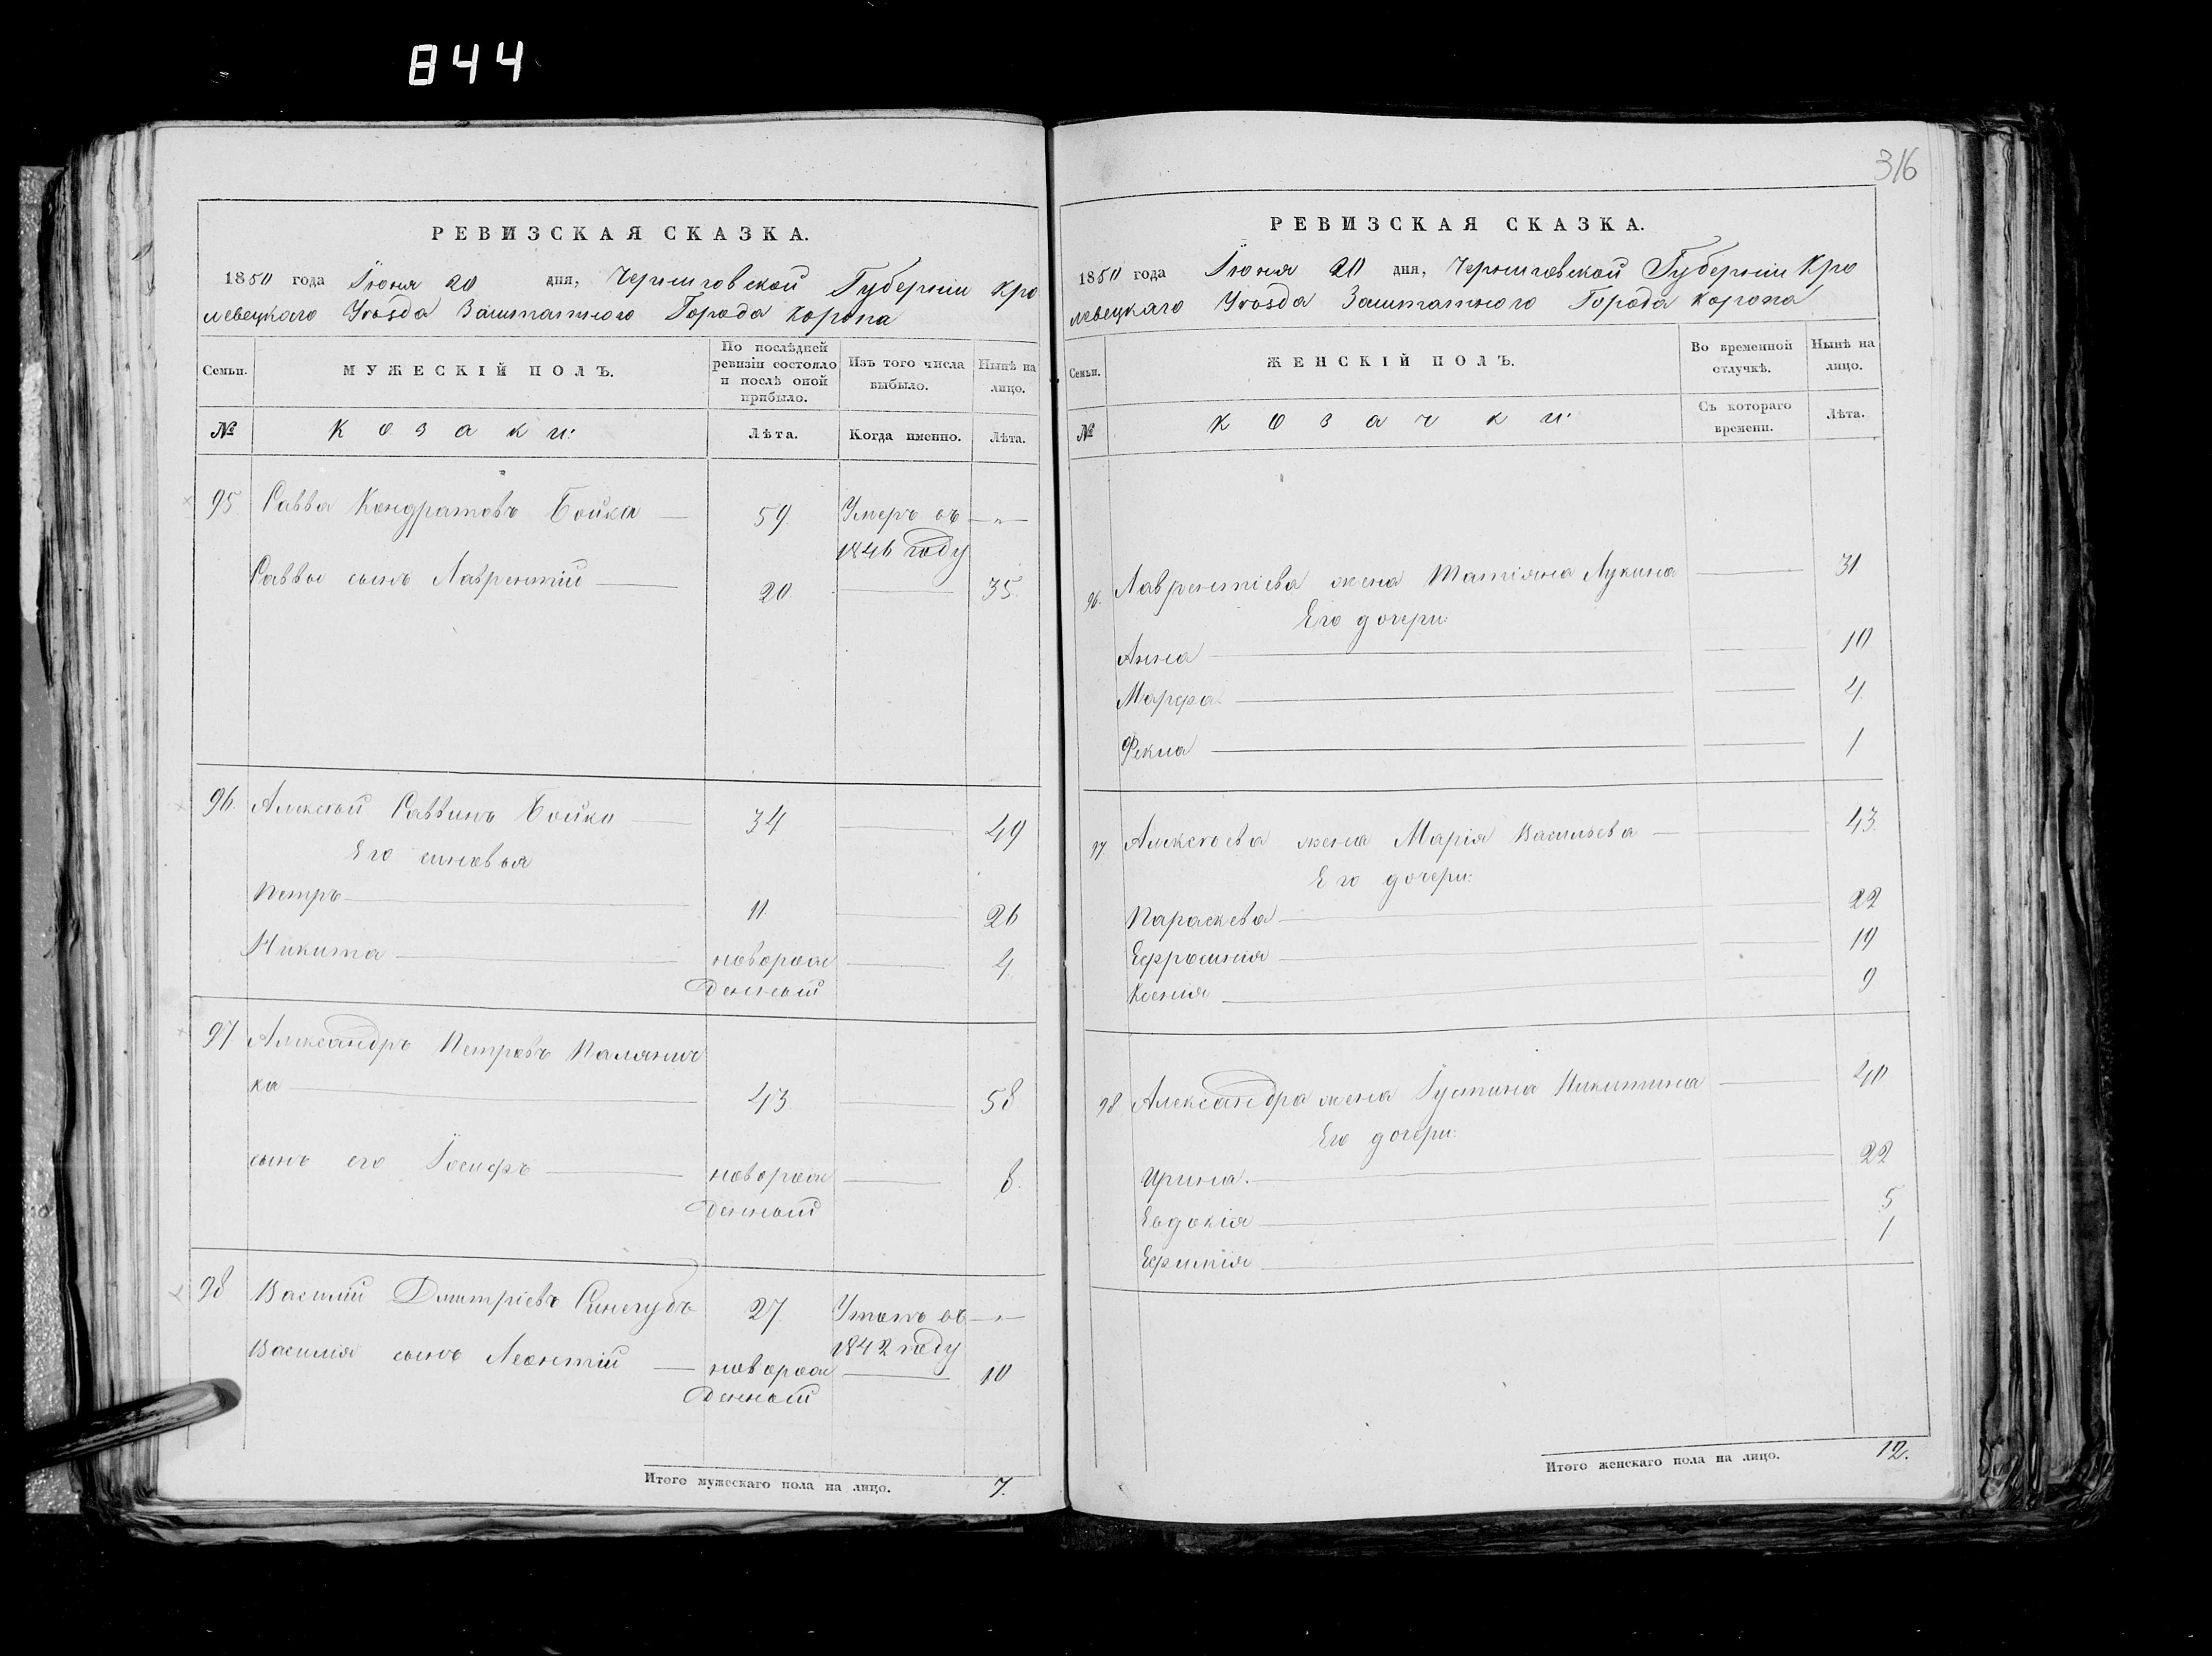 844
РЕВИЗСКАЯ СКАЗКА.
1850 года Іюня 20 дня, Черниговской Губерніи Кро
левецкаго Уѣзда Заштатного Города Коропа
Семьи.
МУЖЕСКІЙ ПОЛЪ.
По послѣдней
ревизіи состояло
и послѣ оной
прибыло.
Изъ того числа
выбыло.
Нынѣ на
лицо.
№
Козаки:
Лѣта.
Когда именно.
Лѣта.
95 Савва Кондратовъ Бойка 59. Умеръ въ —„—
1846 году
Саввы сынъ Лаврентій 20 35.
96. Алексѣй Саввинъ Бойко 34 49
Его синовья
Петръ 11. 26
Никитановорож 4.
денный
97 Александръ Петровъ Палянич
ка 43 58
сынъ его Іосифъ новорож 8.
денный
98 Василій Дмитріевъ Синегубъ 27 Утопъ въ —„—
1842 году
Василія сынъ Леонтій новорож 10
денный
Итого мужескаго пола на лицо. 7.
316
РЕВИЗСКАЯ СКАЗКА.
1850 года Іюня 20 дня, Черниговской Губерніи Кро
левецкаго Уѣзда Заштатного Города Коропа
Семьи.
ЖЕНСКІЙ ПОЛЪ.
Во временной
отлучкѣ.
Нынѣ на
лицо.
№
Козачки:
Съ котораго
времени.
Лѣта.
96. Лаврентіева жена Татіяна Лукина 31
Его дочери:
Анна 10
Марфа 4.
Фекла 1
97 Алексѣева жена Марія Васильева 43.
Его дочери:
Параскева 22
Ефросинія 19
Ксенія 9
98 Александра жена Іустина Никитина 40
Его дочери:
Ирина. 22
Евдокія 5
Ефимія 1
Итого женскаго пола на лицо. 12.